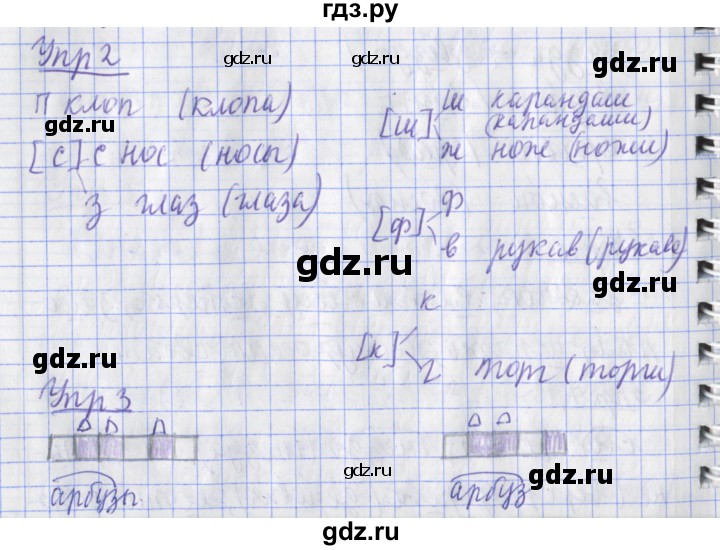 гдз.ру
Упр 2
п клоп (клопа)
[с] с нос (носы)
з глаз (глаза)
[ш] ш карандаш
(карандаши)
ж нож (ножи)
[ф] ф
в рукав (рукава)
к
[к]
г торг (торги)
Упр 3
арбузы
арбуз
gdz.ru
gdz.ru
gdz.ru
gdz.ru
gdz.ru
gdz.ru
gdz.ru
gdz.ru
gdz.ru
gdz.ru
gdz.ru
gdz.ru
gdz.ru